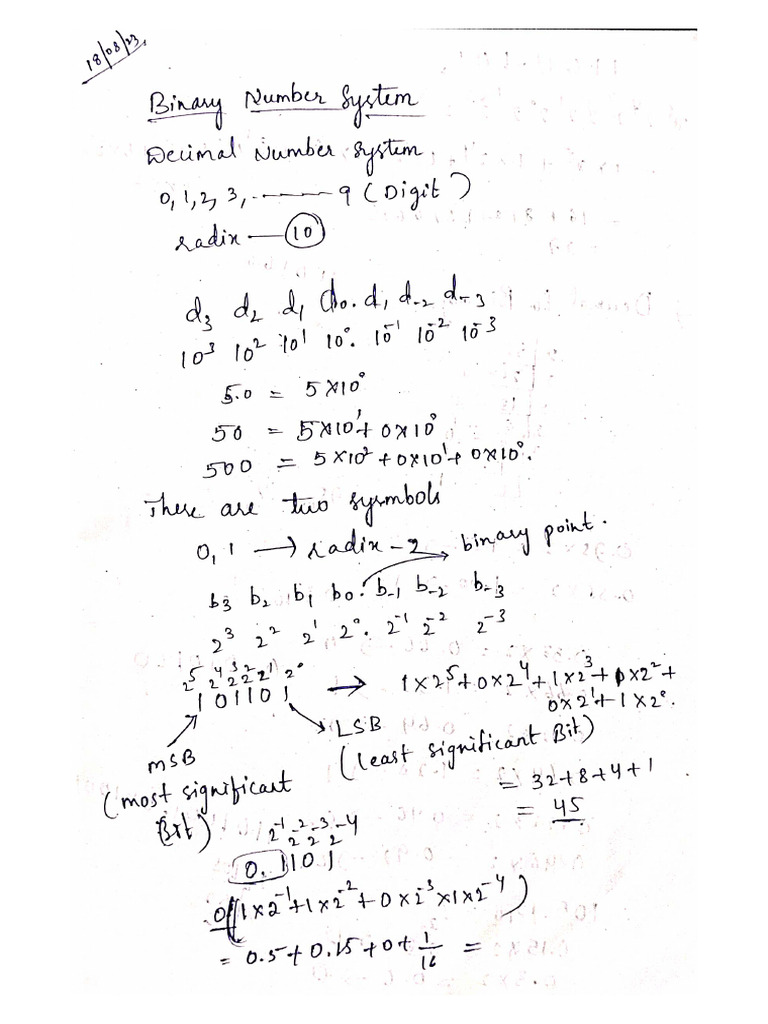 18/08/23,
Binary Number System
Decimal Number System.
0, 1, 2, 3, ------- 9 (Digit)
radix — 10
d₃ d₂ d₁ d₀. d₁ d₋₂ d₋₃
10³ 10² 10¹ 10⁰. 10⁻¹ 10⁻² 10⁻³
5.0 = 5×10⁰
50 = 5×10¹+ 0×10⁰
500 = 5×10² + 0×10¹ + 0×10⁰.
There are two sysmbols
0, 1 → radix - 2 binary point.
b₃ b₂ b₁ b₀. b₋₁ b₋₂ b₋₃
2³ 2² 2¹ 2⁰. 2⁻¹ 2⁻² 2⁻³
2⁵ 2⁴ 2³ 2² 2¹ 2⁰
1 0 1 1 0 1 → 1×2⁵+0×2⁴+1×2³+1×2²+
0×2¹+1×2⁰.
LSB
(least significant Bit)
MSB
(most significant
Bit)
= 32+8+4+1
= 45
2⁻¹ 2⁻² 2⁻³ 2⁻⁴
0. 1 1 0 1
0 (1×2⁻¹+1×2⁻²+0×2⁻³×1×2⁻⁴)
= 0.5+0.25+0+1/16 =